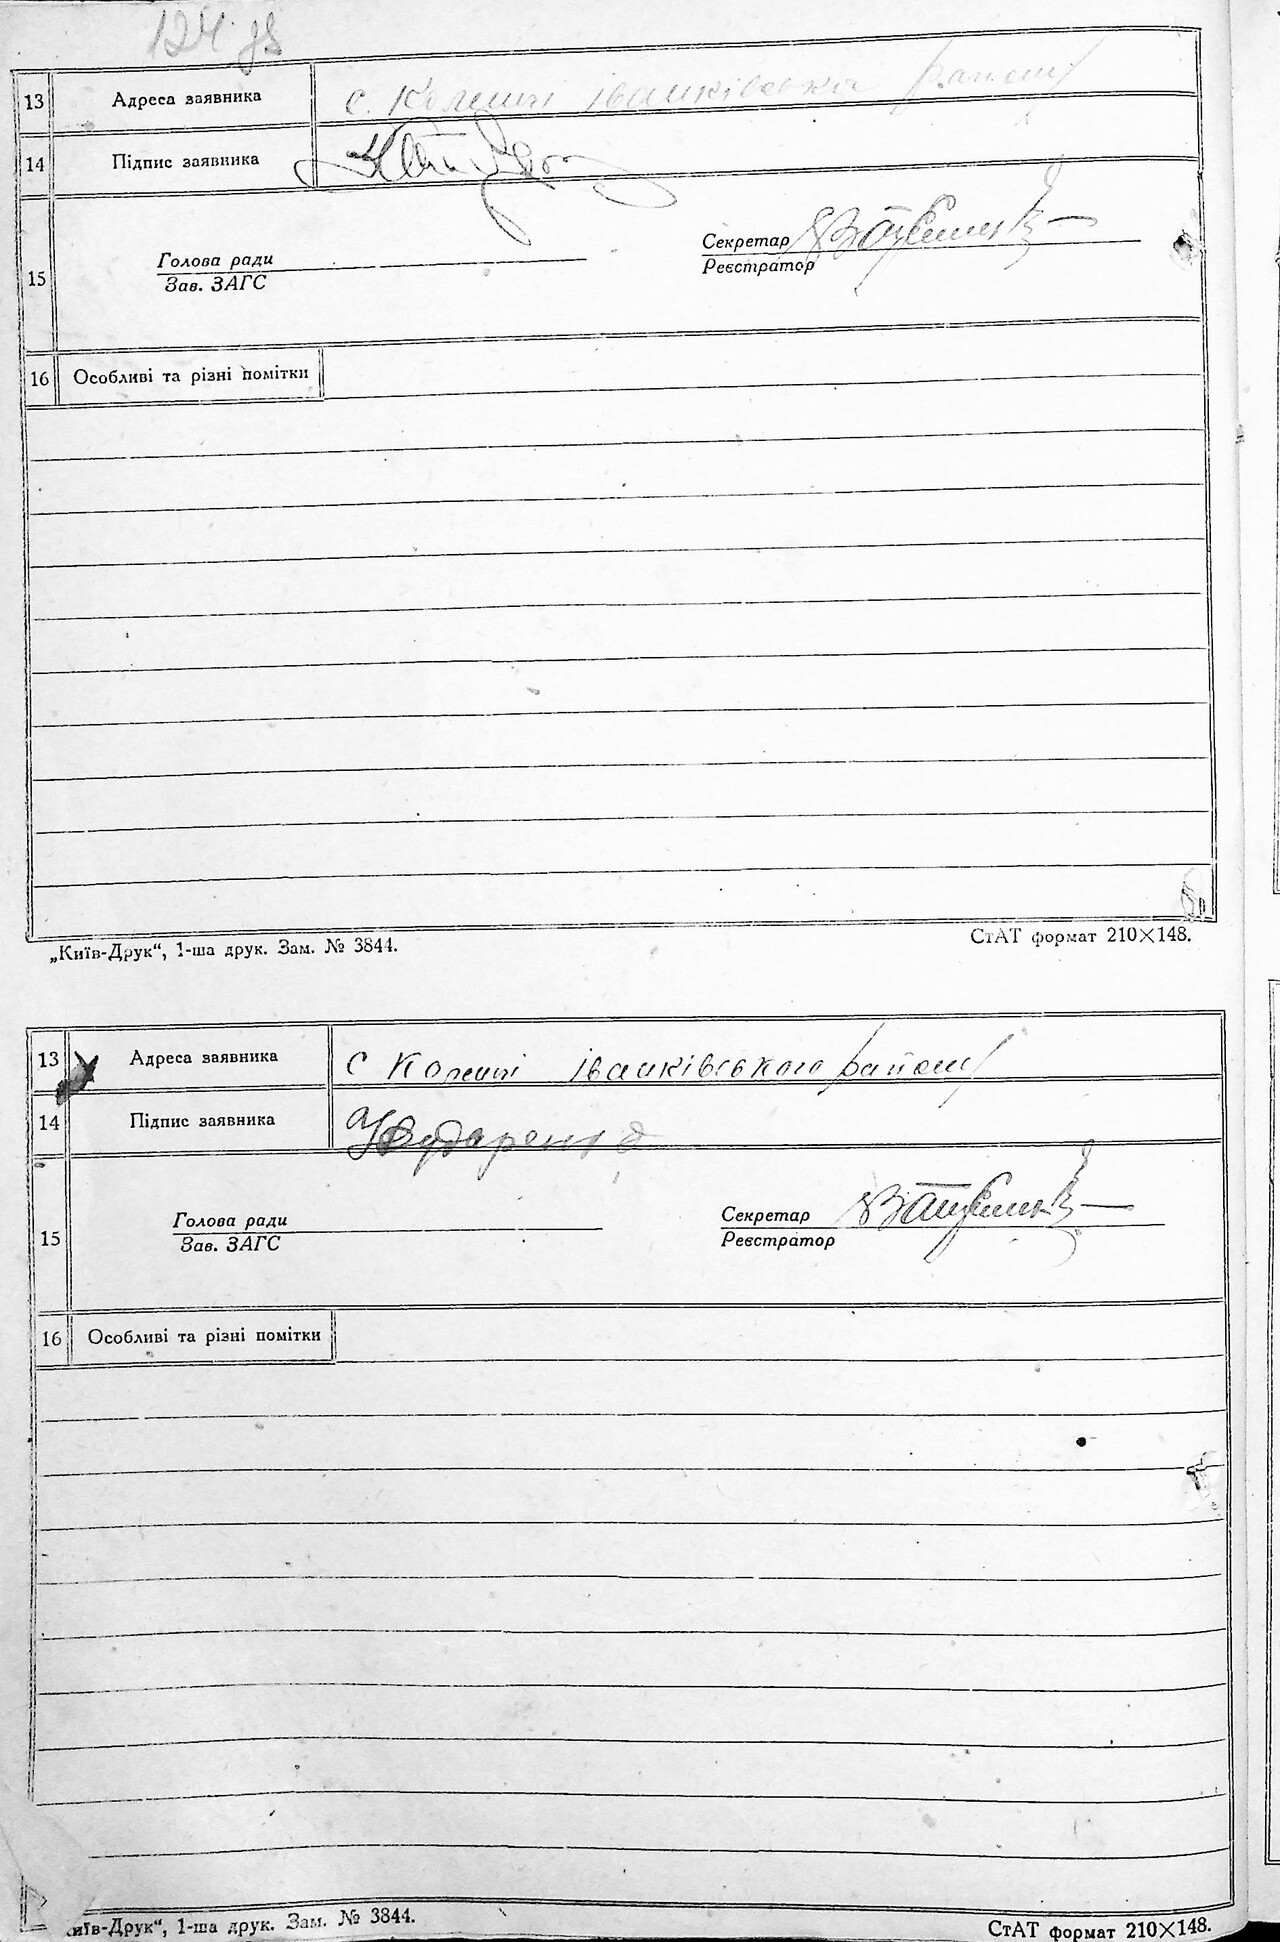 124 зв
13 Адреса заявника с. Колинці іванківського району
14 Підпис заявника
15 Голова ради Секретар
Зав. ЗАГС Реєстратор
16 Особливі та різні помітки
„Київ-Друк“, 1-ша друк. Зам. № 3844. СтАТ формат 210×148.
13 Адреса заявника с іванківського району
14 Підпис заявника
15 Голова ради Секретар
Зав. ЗАГС Реєстратор
16 Особливі та різні помітки
иїв-Друк“, 1-ша друк. Зам. № 3844. СтАТ формат 210×148.